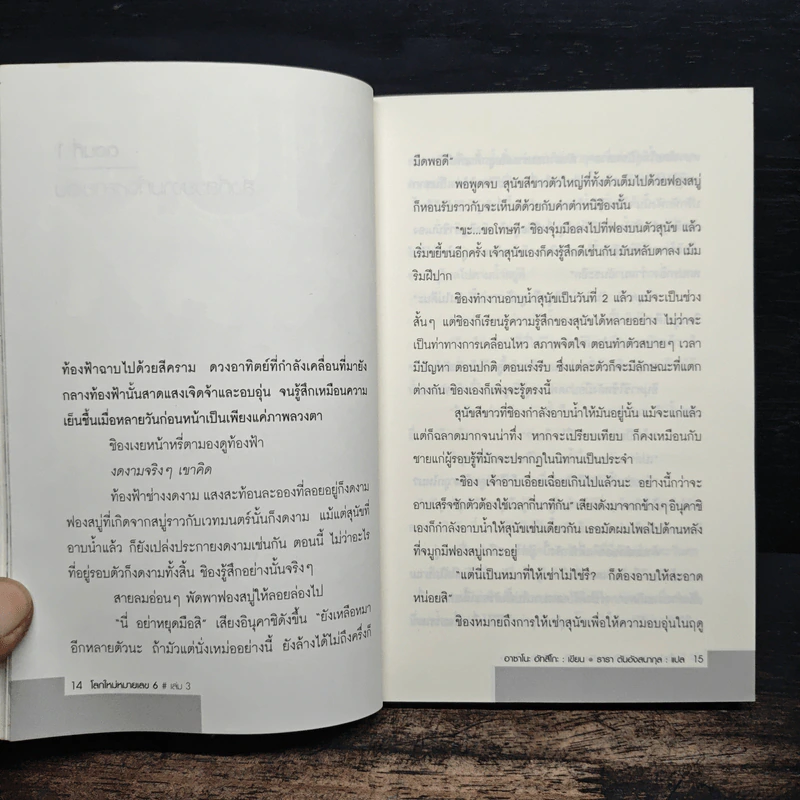 ท้องฟ้าฉาบไปด้วยสีคราม ดวงอาทิตย์ที่กำลังเคลื่อนที่มายัง
กลางท้องฟ้านั้นสาดแสงเจิดจ้าและอบอุ่น จนรู้สึกเหมือนความ
เย็นชื้นเมื่อหลายวันก่อนหน้าเป็นเพียงแค่ภาพลวงตา
ชิองเงยหน้าหรี่ตามองดูท้องฟ้า
งดงามจริงๆ เขาคิด
ท้องฟ้าช่างงดงาม แสงสะท้อนละอองที่ลอยอยู่ก็งดงาม
ฟองสบู่ที่เกิดจากสบู่ราวกับเวทมนตร์นั้นก็งดงาม แม้แต่สุนัขที่
อาบน้ำแล้ว ก็ยังเปล่งประกายงดงามเช่นกัน ตอนนี้ ไม่ว่าอะไร
ที่อยู่รอบตัวก็งดงามทั้งสิ้น ชิองรู้สึกอย่างนั้นจริงๆ
สายลมอ่อนๆ พัดพาฟองสบู่ให้ลอยล่องไป
"นี่ อย่าหยุดมือสิ" เสียงอินุคาชิดังขึ้น "ยังเหลือหมา
อีกหลายตัวนะ ถ้ามัวแต่นั่งเหม่ออย่างนี้ ยังล้างได้ไม่ถึงครึ่งก็
14 โลกใหม่หมายเลข 6 # เล่ม 3
มืดพอดี"
พอพูดจบ สุนัขสีขาวตัวใหญ่ที่ทั้งตัวเต็มไปด้วยฟองสบู่
ก็หอนรับราวกับจะเห็นดีด้วยกับคำตำหนิชิองนั้น
"ขะ...ขอโทษที" ชิองจุ่มมือลงไปที่ฟองบนตัวสุนัข แล้ว
เริ่มขยี้ขนอีกครั้ง เจ้าสุนัขเองก็คงรู้สึกดีเช่นกัน มันหลับตาลง เม้ม
ริมฝีปาก
ชิองทำงานอาบน้ำสุนัขเป็นวันที่ 2 แล้ว แม้จะเป็นช่วง
สั้นๆ แต่ชิองก็เรียนรู้ความรู้สึกของสุนัขได้หลายอย่าง ไม่ว่าจะ
เป็นท่าทางการเคลื่อนไหว สภาพจิตใจ ตอนทำตัวสบายๆ เวลา
มีปัญหา ตอนปกติ ตอนเร่งรีบ ซึ่งแต่ละตัวก็จะมีลักษณะที่แตก
ต่างกัน ชิองเองก็เพิ่งจะรู้ตรงนี้
สุนัขสีขาวที่ชิองกำลังอาบน้ำให้มันอยู่นั้น แม้จะแก่แล้ว
แต่ก็ฉลาดมากจนน่าทึ่ง หากจะเปรียบเทียบ ก็คงเหมือนกับ
ชายแก่ผู้รอบรู้ที่มักจะปรากฏในนิทานเป็นประจำ
"ชิอง เจ้าอาบเอื่อยเฉื่อยเกินไปแล้วนะ อย่างนี้กว่าจะ
อาบเสร็จซักตัวต้องใช้เวลากี่นาทีกัน" เสียงดังมาจากข้างๆ อินุคาชิ
เองก็กำลังอาบน้ำให้สุนัขเช่นเดียวกัน เธอมัดผมไพล่ไปด้านหลัง
ที่จมูกมีฟองสบู่เกาะอยู่
"แต่นี่เป็นหมาที่ให้เช่าไม่ใช่รึ? ก็ต้องอาบให้สะอาด
หน่อยสิ"
ชิองหมายถึงการให้เช่าสุนัขเพื่อให้ความอบอุ่นในฤดู
อาซาโนะ อัทสึโกะ : เขียน • ธารา ตันอังสนากุล : แปล 15